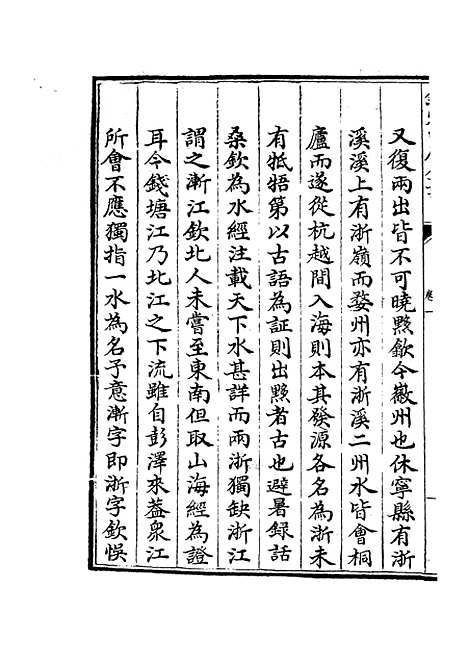 又復兩出皆不可曉黟歙今徽州也休寧縣有浙
溪溪上有浙嶺而婺州亦有浙溪二州水皆會桐
廬而遂從杭越間入海則本其發源各名為浙未
有牴牾第以古語為証則出黟者古也避暑録話
桑欽為水經注載天下水甚詳而兩浙獨缺浙江
謂之漸江欽北人未嘗至東南但取山海經為證
耳今錢塘江乃北江之下流雖自彭澤來葢衆江
所會不應獨指一水為名予意漸字即浙字欽悞